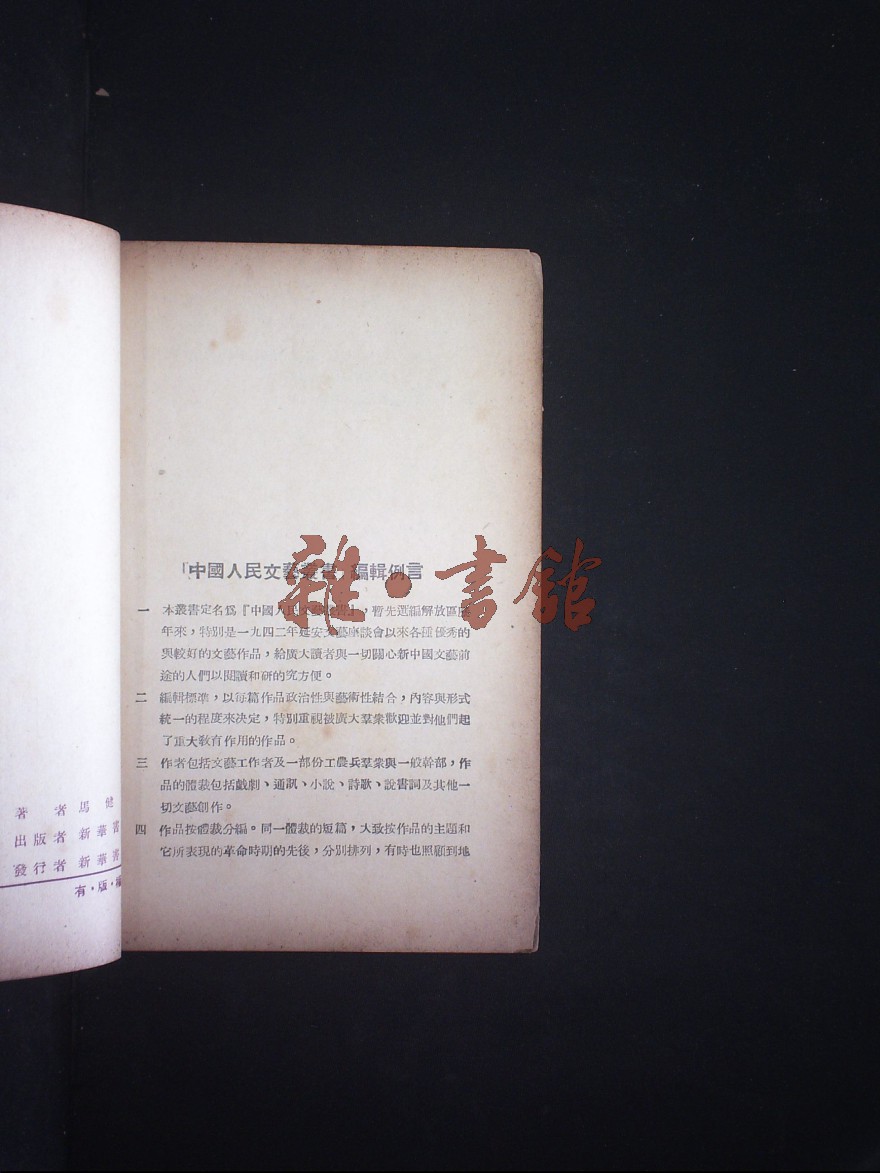 著者 馬健
出版者 新華書
發行者 新華書
有·版·
「中國人民文藝叢書」編輯例言
一 本叢書定名爲『中國人民文藝叢書』，暫先選編解放區歷
年來，特別是一九四二年延安文藝座談會以來各種優秀的
與較好的文藝作品，給廣大讀者與一切關心新中國文藝前
途的人們以閱讀和研的究方便。
二 編輯標準，以每篇作品政治性與藝術性結合，內容與形式
統一的程度來決定，特別重視被廣大羣衆歡迎並對他們起
了重大教育作用的作品。
三 作者包括文藝工作者及一部份工農兵羣衆與一般幹部，作
品的體裁包括戲劇、通訊、小說、詩歌、說書詞及其他一
切文藝創作。
四 作品按體裁分編。同一體裁的短篇，大致按作品的主題和
它所表現的革命時期的先後，分別排列，有時也照顧到地
雜·書館